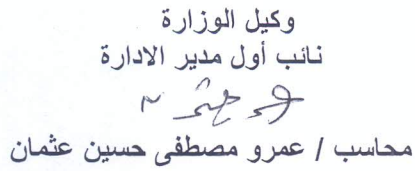 وكيل الوزارة
نائب أول مدير الادارة
محاسب / عمرو مصطفى حسين عثمان